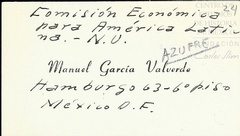 24
Comisión Económica
para América Lati-
na.- N.U.
AZUFRE
Manuel García Valverde
Hamburgo 63-6º piso
México D.F.